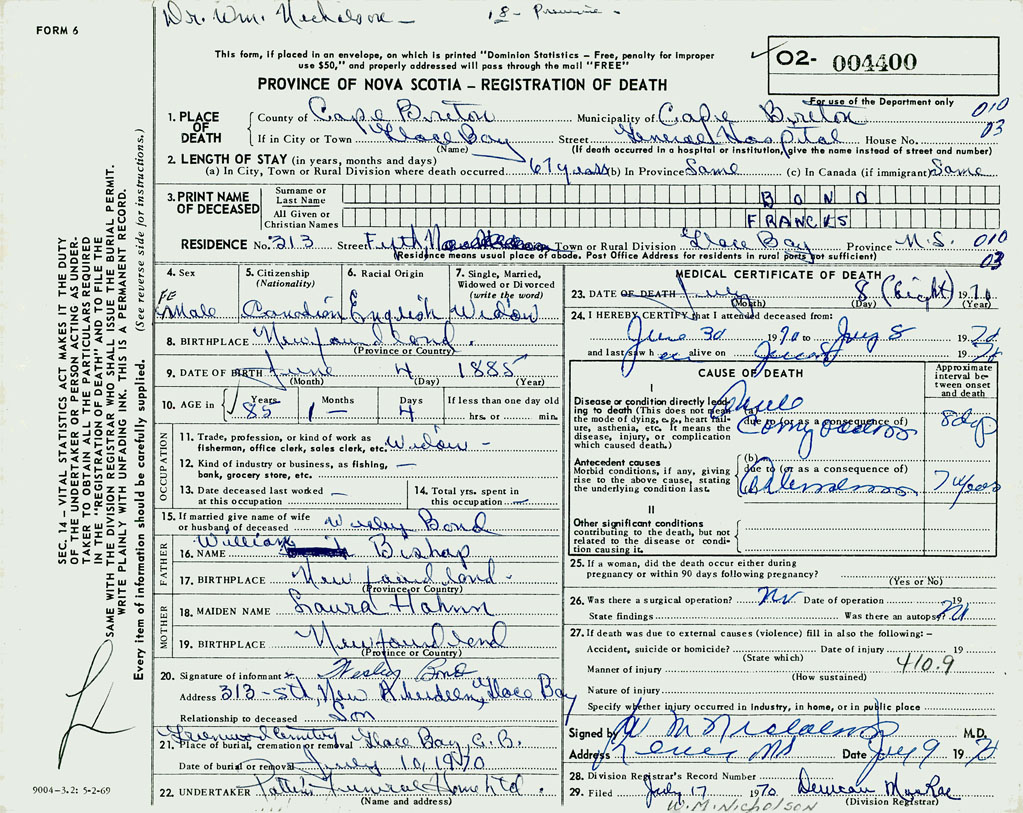 Dr. Wm. Nicholson - 18 -
FORM 6
This form, if placed in an envelope, on which is printed "Dominion Statistics - Free, penalty for improper
use $50," and properly addressed will pass through the mail "FREE"
02- 004400
PROVINCE OF NOVA SCOTIA - REGISTRATION OF DEATH
For use of the Department only
1. PLACE OF DEATH
County of Cape Breton Municipality of Cape Breton 010
If in City or Town Glace Bay Street General Hospital House No. 03
(Name) (If death occurred in a hospital or institution, give the name instead of street and number)
2. LENGTH OF STAY (in years, months and days)
(a) In City, Town or Rural Division where death occurred 67 years (b) In Province Same (c) In Canada (if immigrant) Same
3. PRINT NAME OF DECEASED
Surname or Last Name BOND
All Given or Christian Names FRANCES
RESIDENCE No. 313 Street Fifth, Town or Rural Division Glace Bay Province N.S. 010
(Residence means usual place of abode. Post Office Address for residents in rural parts not sufficient) 03
4. Sex FEMale
5. Citizenship (Nationality) Canadian
6. Racial Origin English
7. Single, Married, Widowed or Divorced (write the word) Widow
8. BIRTHPLACE Newfoundland.
(Province or Country)
9. DATE OF BIRTH June 4 1885
(Month) (Day) (Year)
10. AGE in Years 85 Months 1 - Days 4 If less than one day old
hrs. or min.
OCCUPATION
11. Trade, profession, or kind of work as
fisherman, office clerk, sales clerk, etc. Widow -
12. Kind of industry or business, as fishing,
bank, grocery store, etc. -
13. Date deceased last worked at this occupation -
14. Total yrs. spent in this occupation -
15. If married give name of wife
or husband of deceased Wesley Bond
FATHER
16. NAME William Bishop
17. BIRTHPLACE Newfoundland -
(Province or Country)
MOTHER
18. MAIDEN NAME Laura Hahnn
19. BIRTHPLACE Newfoundland
(Province or Country)
20. Signature of informant Wesley Bond
Address 313 - 5th, New Aberdeen, Glace Bay
Relationship to deceased Son
Greenwood Cemetery
21. Place of burial, cremation or removal Glace Bay, C.B.
Date of burial or removal July 10, 1970
22. UNDERTAKER Funeral Home Ltd.
(Name and address)
MEDICAL CERTIFICATE OF DEATH
23. DATE OF DEATH July 8 (Eight) 1970
(Month) (Day) (Year)
24. I HEREBY CERTIFY that I attended deceased from:
June 30 1970 to July 8 1970
and last saw her alive on 1970
CAUSE OF DEATH
Approximate interval between onset and death
I
Disease or condition directly leading
to death (This does not mean
the mode of dying, e.g., heart failure,
asthenia, etc. It means the
disease, injury, or complication
which caused death.)
(a)
due to (or as a consequence of)
8 days
Antecedent causes
Morbid conditions, if any, giving
rise to the above cause, stating
the underlying condition last.
(b)
due to (or as a consequence of)
(c)
7 years
II
Other significant conditions
contributing to the death, but not
related to the disease or condition
causing it.
25. If a woman, did the death occur either during
pregnancy or within 90 days following pregnancy?
(Yes or No)
26. Was there a surgical operation? No Date of operation 19
State findings Was there an autopsy? No
27. If death was due to external causes (violence) fill in also the following: -
Accident, suicide or homicide? Date of injury 19
(State which)
410.9
Manner of injury
(How sustained)
Nature of injury
Specify whether injury occurred in industry, in home, or in public place
Signed by W M Nicholson M.D.
Address NS Date July 9 1970
28. Division Registrar's Record Number
29. Filed July 17 1970 Duncan MacRae
(Division Registrar)
W.M. NICHOLSON
SEC. 14 - VITAL STATISTICS ACT MAKES IT THE DUTY
OF THE UNDERTAKER OR PERSON ACTING AS UNDERTAKER
TO OBTAIN ALL THE PARTICULARS REQUIRED
IN THE "REGISTRATION OF DEATH" AND TO FILE THE
SAME WITH THE DIVISION REGISTRAR WHO SHALL ISSUE THE BURIAL PERMIT.
WRITE PLAINLY WITH UNFADING INK. THIS IS A PERMANENT RECORD.
Every item of information should be carefully supplied. (See reverse side for instructions.)
9004-3.2: 5-2-69